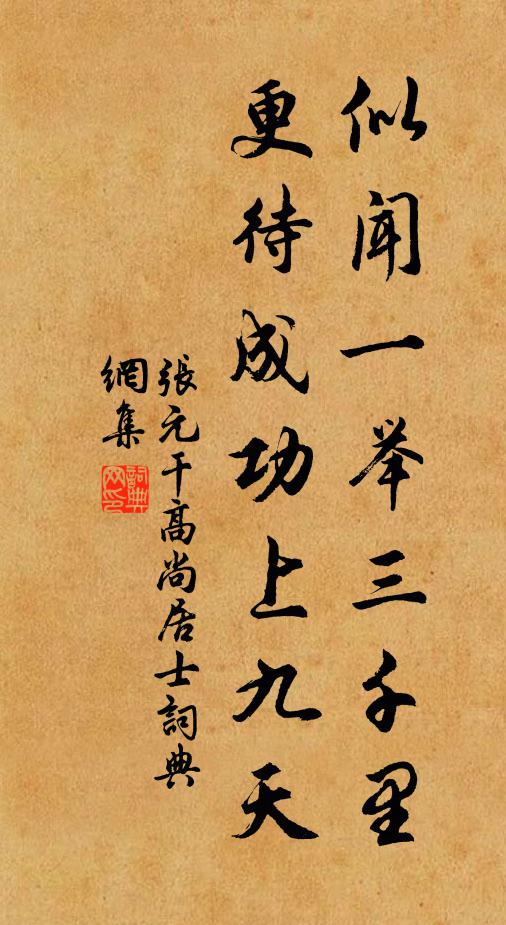 似闻一举三千里
更待成功上九天
張元干高尚居士詞典
網集
詞典網印